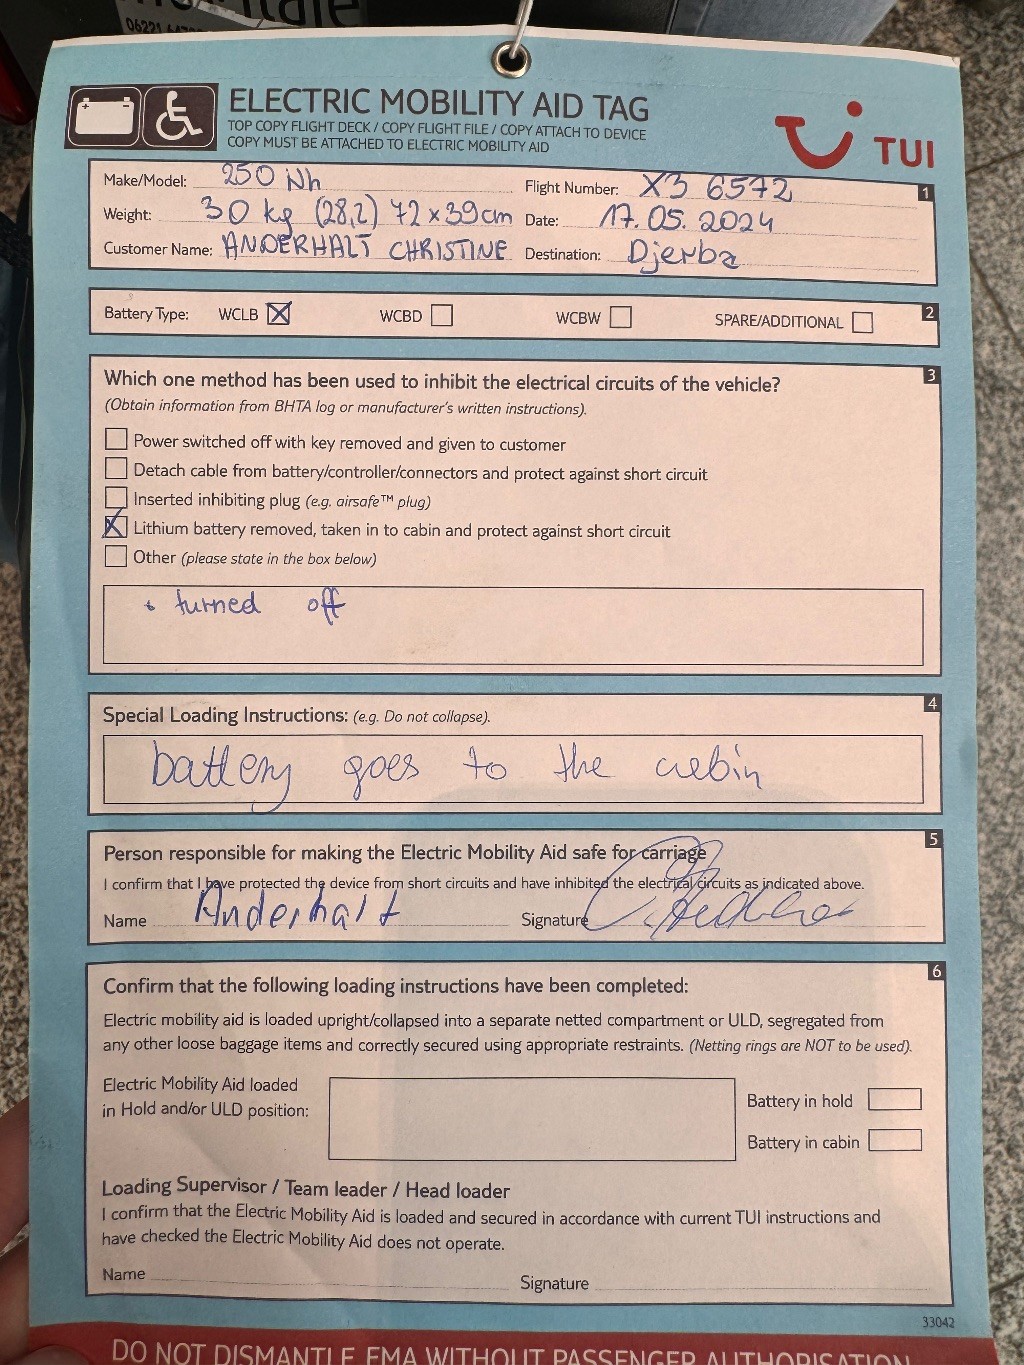 ELECTRIC MOBILITY AID TAG
TOP COPY FLIGHT DECK / COPY FLIGHT FILE / COPY ATTACH TO DEVICE
COPY MUST BE ATTACHED TO ELECTRIC MOBILITY AID
TUI
1
Make/Model: 250 Wh
Flight Number: X3 6572
Weight: 30 kg (28,2) 72 x 39 cm
Date: 17.05.2024
Customer Name: ANDERHALT CHRISTINE
Destination: Djerba
2
Battery Type: WCLB WCBD WCBW SPARE/ADDITIONAL
3
Which one method has been used to inhibit the electrical circuits of the vehicle?
(Obtain information from BHTA log or manufacturer's written instructions).
Power switched off with key removed and given to customer
Detach cable from battery/controller/connectors and protect against short circuit
Inserted inhibiting plug (e.g. airsafe™ plug)
Lithium battery removed, taken in to cabin and protect against short circuit
Other (please state in the box below)
turned off
4
Special Loading Instructions: (e.g. Do not collapse).
battery goes to the cabin
5
Person responsible for making the Electric Mobility Aid safe for carriage
I confirm that I have protected the device from short circuits and have inhibited the electrical circuits as indicated above.
Name Anderhalt Signature
6
Confirm that the following loading instructions have been completed:
Electric mobility aid is loaded upright/collapsed into a separate netted compartment or ULD, segregated from
any other loose baggage items and correctly secured using appropriate restraints. (Netting rings are NOT to be used).
Electric Mobility Aid loaded
in Hold and/or ULD position:
Battery in hold
Battery in cabin
Loading Supervisor / Team leader / Head loader
I confirm that the Electric Mobility Aid is loaded and secured in accordance with current TUI instructions and
have checked the Electric Mobility Aid does not operate.
Name Signature
33042
DO NOT DISMANTLE EMA WITHOUT PASSENGER AUTHORISATION